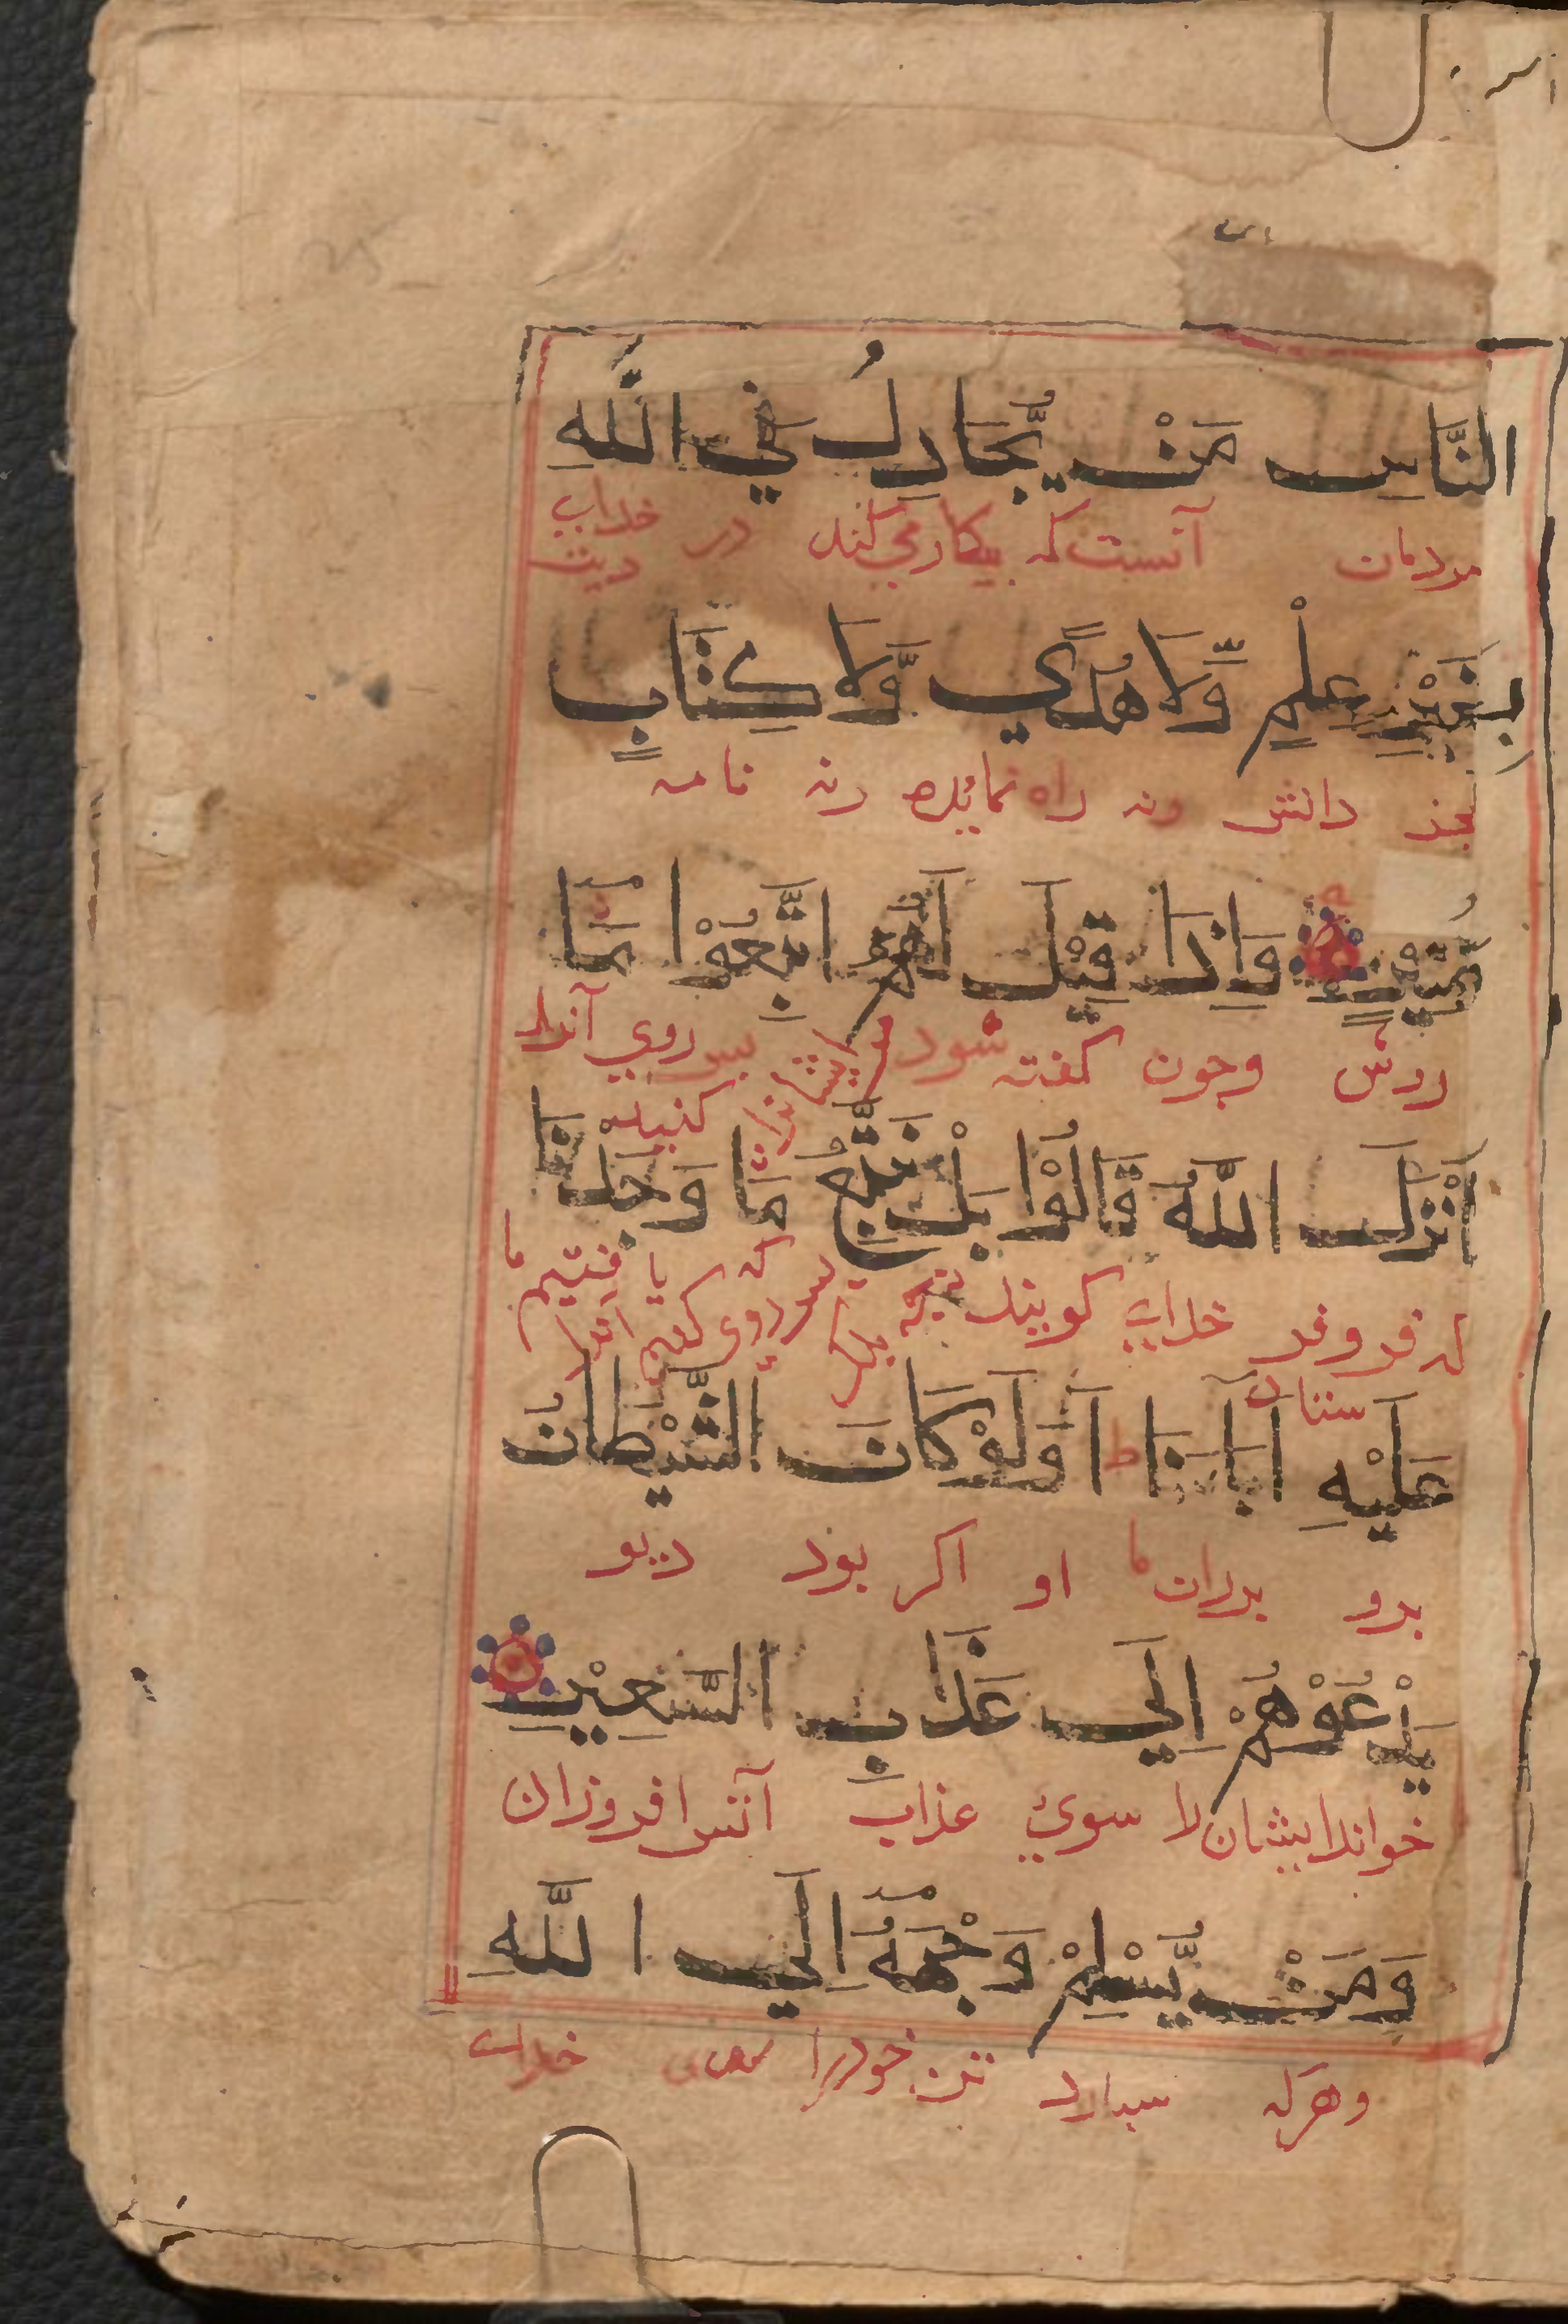 النَّاسِ مَنْ يُّجَادِلُ فِي اللّٰهِ
مردمان آنست که بیکار می کند در دین خدای
بِغَيْرِ عِلْمٍ وَّلَا هُدًي وَّلَا كِتَابٍ
بجز دانش ونه راه نماینده ونه نامه
مُّنِيْرٍ وَاِذَا قِيْلَ لَهُمُ اتَّبِعُوْا مَا
روشن وجون کفته شود مر ایشانرا بس روي کنید آنرا
اَنْزَلَ اللّٰهُ قَالُوْا بَلْ نَتَّبِعُ مَا وَجَدْنَا
که فروفرستاد خدای کویند بلکه بس روی کنیم آنرا که یافتیم ما
عَلَيْهِ اٰبَاءَنَا ط اَوَلَوْ كَانَ الشَّيْطَانُ
برو بدران ما او اکر بود دیو
يَدْعُوْهُمْ اِلٰي عَذَابِ السَّعِيْرِ
خواند ایشان را سوي عذاب آتش افروزان
وَمَنْ يُّسْلِمْ وَجْهَهٗ اِلَي اللّٰهِ
وهرکه سبارد تن خودرا سوی خدای